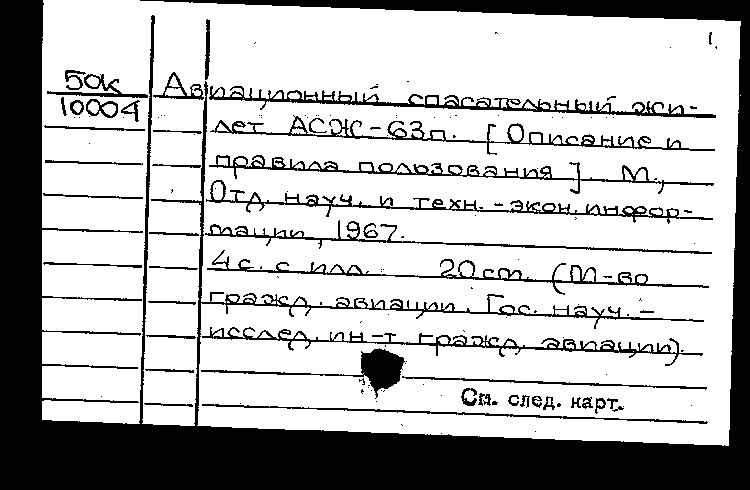 1.
50к
10004
Авиационный спасательный жи-
лет АСЖ-63п. [Описание и
правила пользования]. М.,
Отд. науч. и техн.-экон. инфор-
мации, 1967.
4 с. с илл. 20 см. (М-во
гражд. авиации. Гос. науч.-
исслед. ин-т гражд. авиации).
См. след. карт.